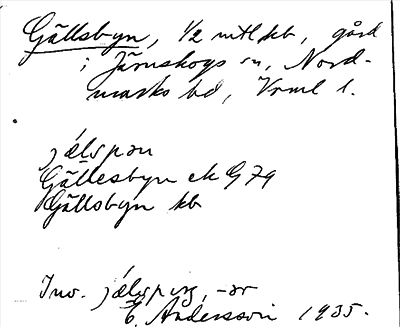 Gällsbyn, 1/2 mtl kb, gård
i Järnskogs sn, Nord-
marks hd, Vrml l.
jälspən
Gällesbyn ek G 79
Gällsbyn kb
Inv. -ər
E. Andersson 1935.